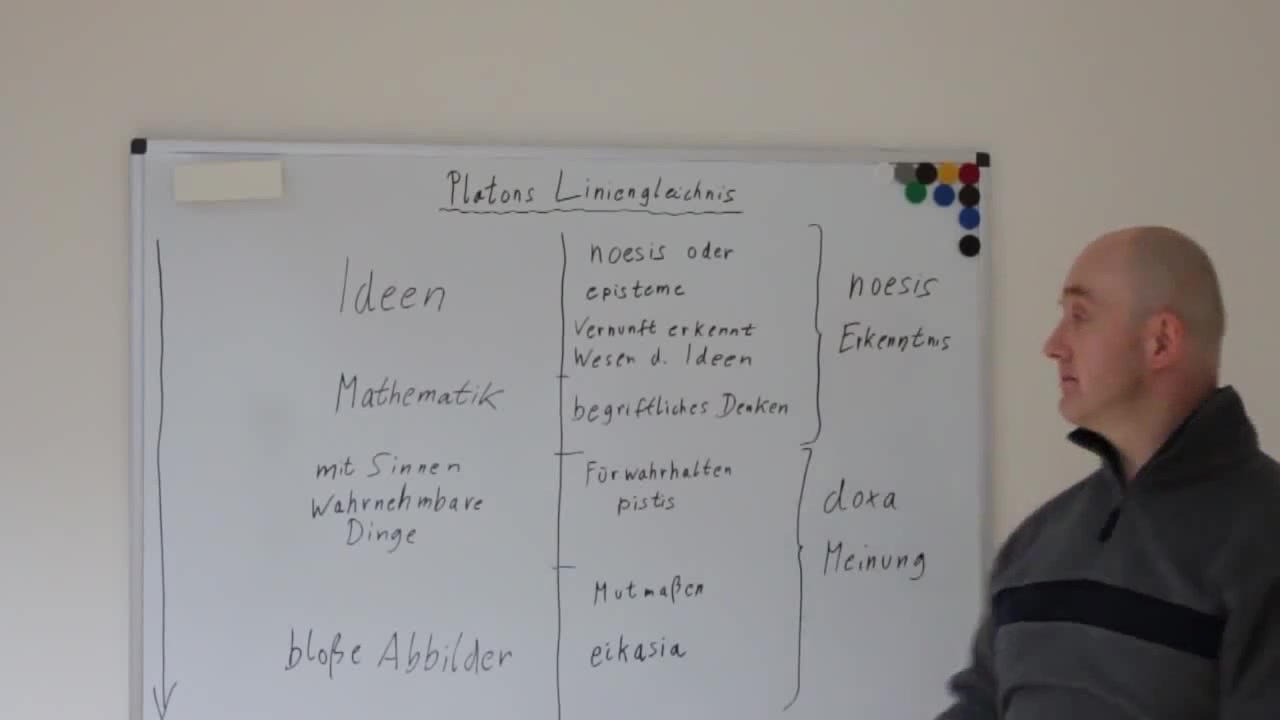 Platons Liniengleichnis
Ideen
Mathematik
mit Sinnen
Wahrnehmbare
Dinge
bloße Abbilder
noesis oder
episteme
Vernunft erkennt
Wesen d. Ideen
begriffliches Denken
Fürwahrhalten
pistis
Mutmaßen
eikasia
noesis
Erkenntnis
doxa
Meinung